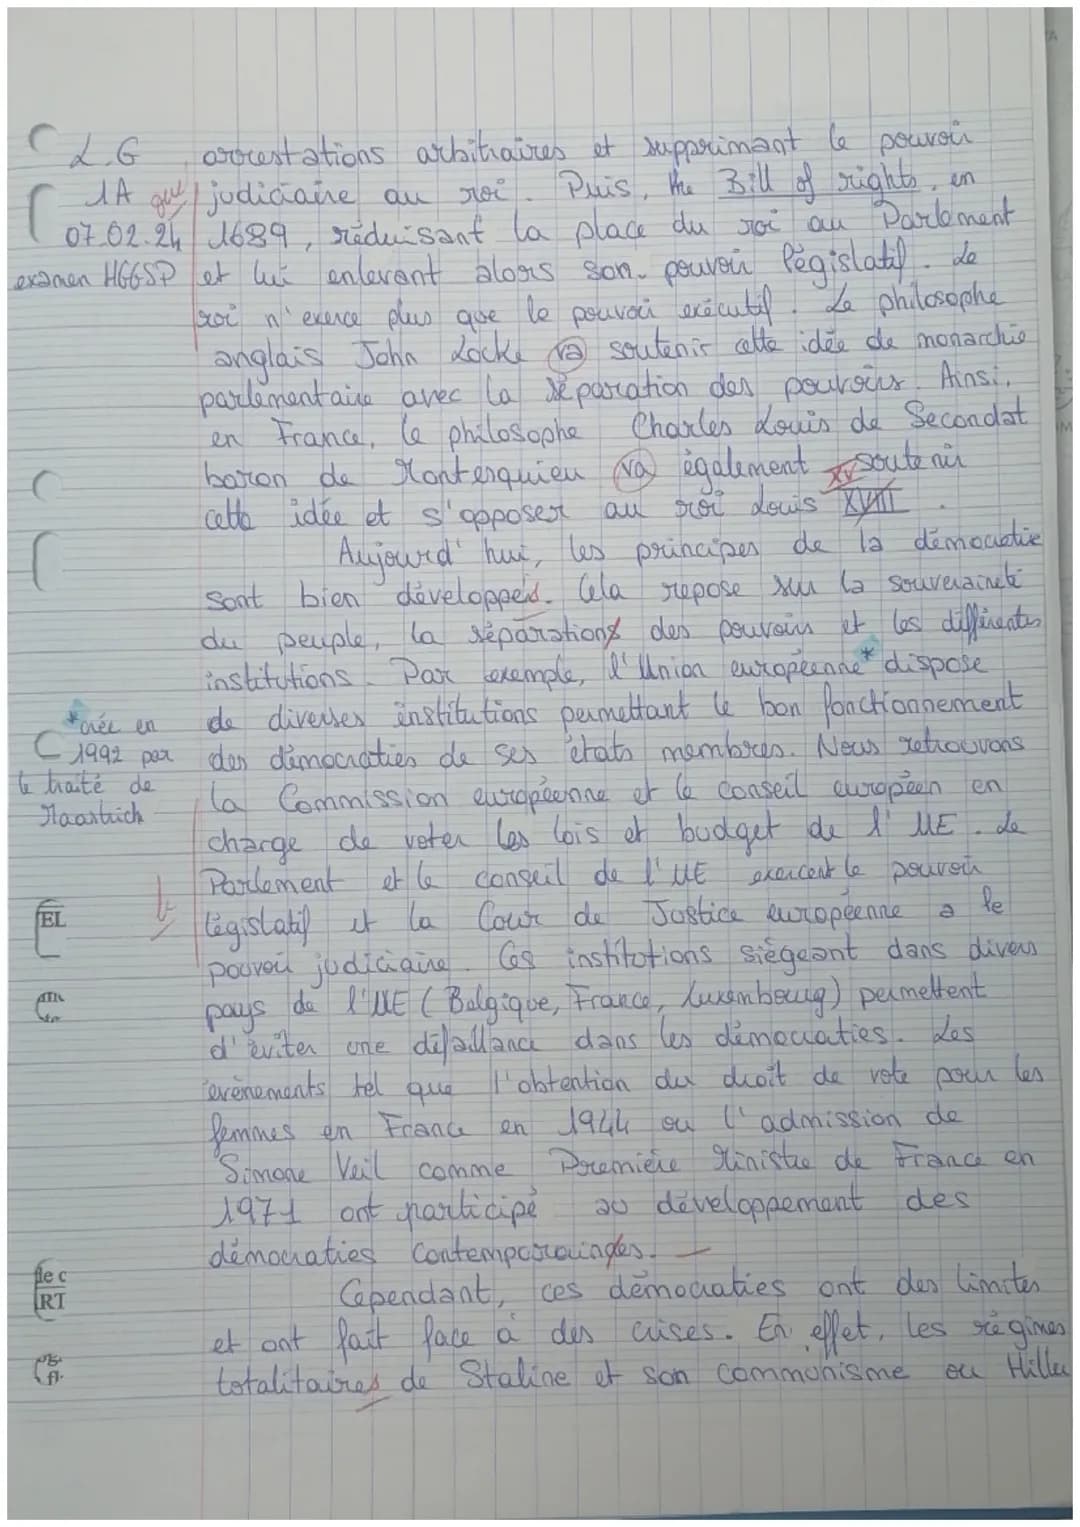 L.G
1A
07.02.24
examen HGGSP
arrestations arbitraires et supprimant le pouvoir
judiciaire au roi. Puis, the Bill of rights, en
1689, réduisant la place du roi au Parlement
et lui enlevant alors son pouvoir législatif. Le
roi n'exerce plus que le pouvoir exécutif. Le philosophe
anglais John Locke va soutenir cette idée de monarchie
parlementaire avec la séparation des pouvoirs. Ainsi,
en France, le philosophe Charles Louis de Secondat
baron de Montesquieu va également soutenir
XV
cette idée et s'opposer au roi Louis XVIII.
Aujourd'hui, les principes de la démocratie
sont bien développés. Cela repose sur la souveraineté
du peuple, la séparations des pouvoirs et les différentes
institutions. Par exemple, l'Union européenne* dispose
de diverses institutions permettant le bon fonctionnement
des démocraties de ses états membres. Nous retrouvons
la Commission européenne et le conseil européen en
charge de voter les lois et budget de l'UE. Le
Parlement et le conseil de l'UE exercent le pouvoir
législatif et la Cour de Justice européenne a le
pouvoir judiciaire. Ces institutions siégeant dans divers
pays de l'UE (Belgique, France, Luxembourg) permettent
d'éviter une défaillance dans les démocraties. Les
évènements tel que l'obtention du droit de vote pour les
femmes en France en 1944 ou l'admission de
Simone Veil comme Première Ministre de France en
1971 ont participé au développement des
démocraties contemporaines.
Cependant, ces démocraties ont des limites
et ont fait face à des crises. En effet, les régimes
totalitaires de Staline et son communisme ou Hitler
*créée en
1992 par
le traité de
Maastrich
EL
de c
RT